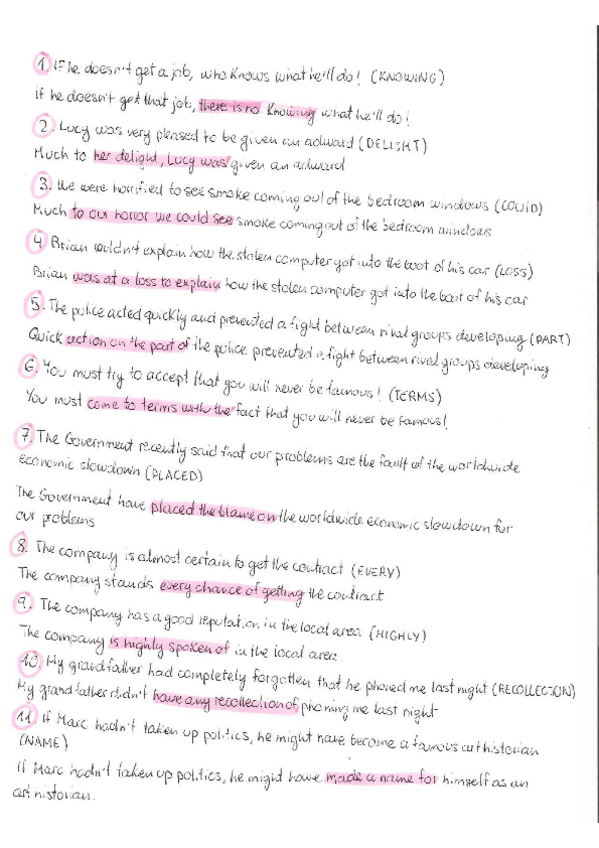 1. If he doesn't get a job, who knows what he'll do! (KNOWING)
if he doesn't get that job, there is no knowing what he'll do!
2. Lucy was very pleased to be given an adward (DELIGHT)
Much to her delight, Lucy was given an adward
3. We were horrified to see smoke coming out of the bedroom windows (COULD)
Much to our horror we could see smoke coming out of the bedroom windows
4. Brian couldn't explain how the stolen computer got into the boot of his car (LOSS)
Brian was at a loss to explain how the stolen computer got into the boot of his car
5. The police acted quickly and prevented a fight between rival groups developing (PART)
Quick action on the part of the police prevented a fight between rival groups developing
6. You must try to accept that you will never be famous! (TERMS)
You must come to terms with the fact that you will never be famous!
7. The Government recently said that our problems are the fault of the worldwide
economic slowdown (PLACED)
The Government have placed the blame on the worldwide economic slowdown for
our problems
8. The company is almost certain to get the contract (EVERY)
The company stands every chance of getting the contract
9. The company has a good reputation in the local area (HIGHLY)
The company is highly spoken of in the local area
10. My grandfather had completely forgotten that he phoned me last night (RECOLLECTION)
My grandfather didn't have any recollection of phoning me last night
11. If Marc hadn't taken up politics, he might have become a famous art historian
(NAME)
If Marc hadn't taken up politics, he might have made a name for himself as an
art historian.